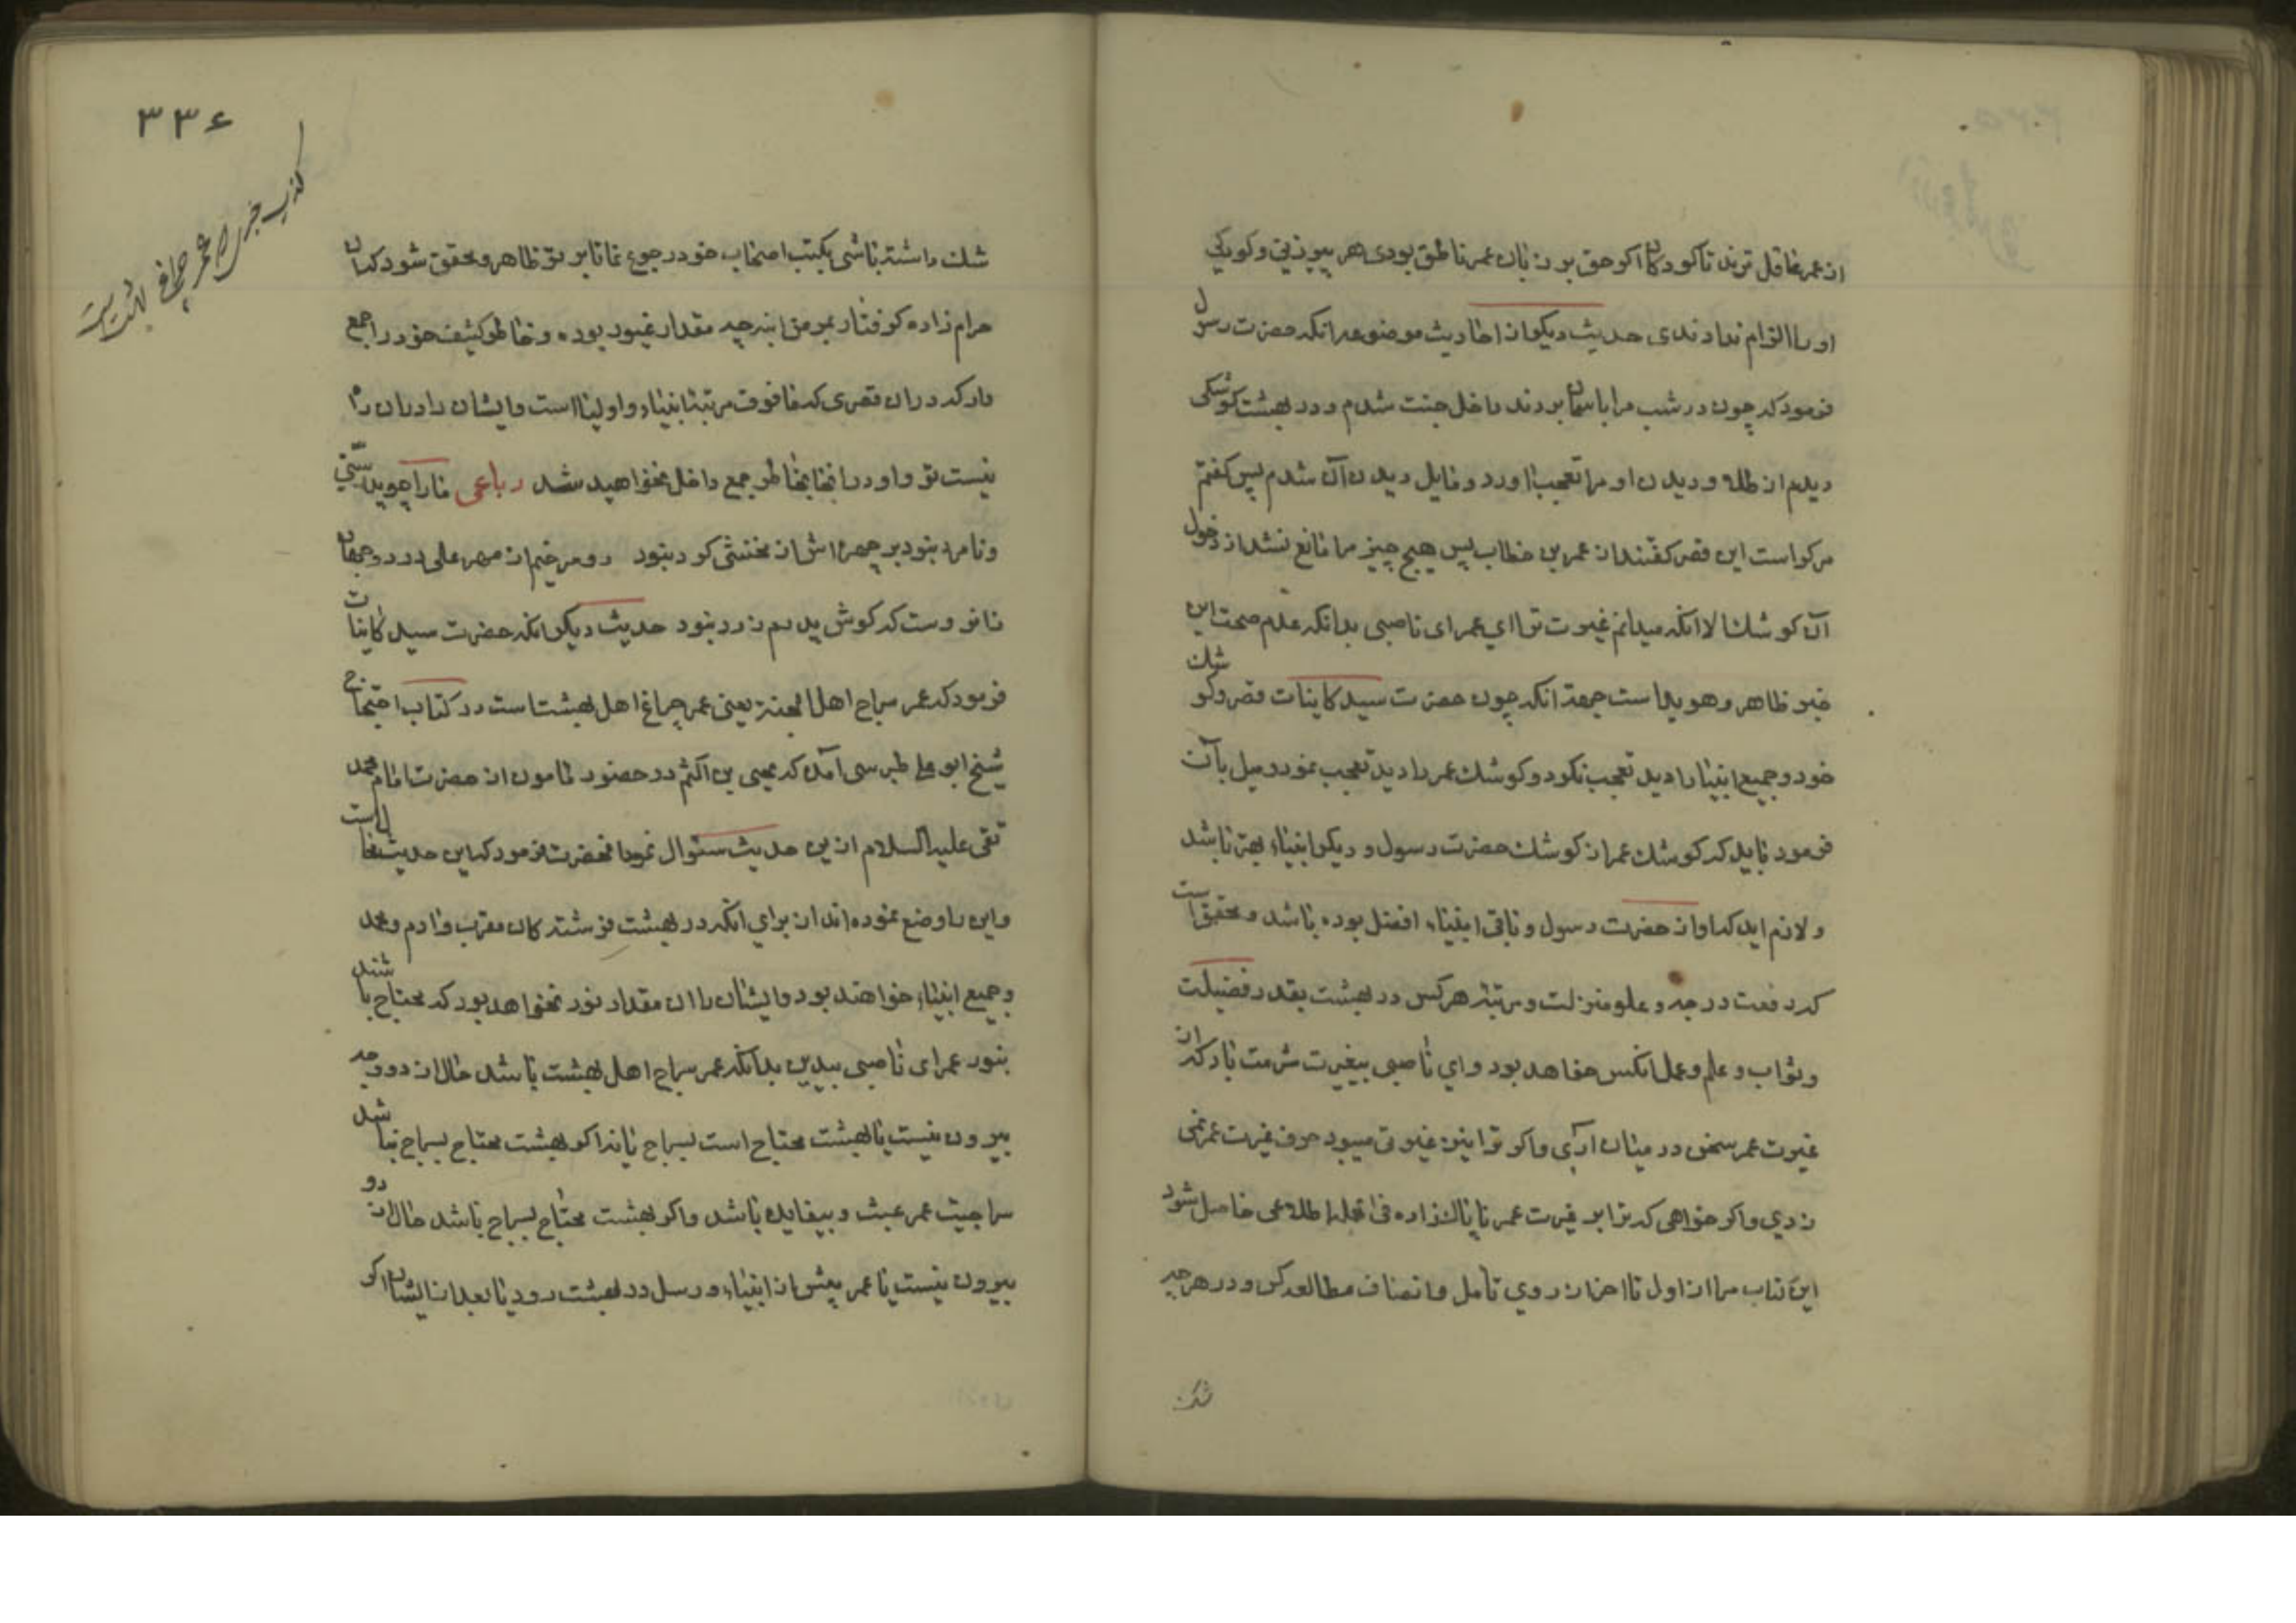 از عمر عاقل ترند تا کودکان اکر حق بر زبان عمر ناطق بودی هر پیرزنی و کودکی
او را الزام ندادندی حدیث دیکر از احادیث موضوعه انکه حضرت رسول
فرمود که چون در شب مرا باسمان بردند داخل جنت شدم و در بهشت کوشکی
دیدم از طلا و دیدن او مرا تعجب اورد و مایل دیدن آن شدم پس کفتم
مر کراست این قصر کفتند از عمر بن خطاب پس هیچ چیز مرا مانع نشد از دخول
آن کوشک الا انکه میدانم غیرت ترا ای عمر ای ناصبی بدانکه عدم صحت این
خبر ظاهر و هویداست جهة انکه چون حضرت سید کاینات قصر و کوشک
خود و جمیع انبیا را دید تعجب نکرد و کوشک عمر را دید تعجب نمود و میل بآن
فرمود باید که کوشک عمر از کوشک حضرت رسول و دیکر انبیاء بهتر باشد
و لازم اید که او از حضرت رسول و باقی انبیاء افضل بوده باشد و محقق است
که رفعت درجه و علو منزلت و مرتبه هر کس در بهشت بقدر فضیلت
و ثواب و علم و عمل انکس خواهد بود و ای ناصبی بیغیرت شرمت باد که از
غیرت عمر سخن در میان آری و اکر ترا اینز غیرتی میبود حرف غیرت عمر نمی
زدی و اکر خواهی که ترا بر غیرت عمر ناپاک زاده فی الجمله اطلاعی حاصل شود
این کتاب مرا از اول تا اخر از روی تامل و انصاف مطالعه کن و در هر چه
شک
۳۳۶
کذب خبر عمر چراغ بهشت است
شک داشته باشی بکتب اصحاب خود رجوع نما تا بر تو ظاهر و محقق شود که ان
حرام زاده کرفتار بمرض ابنه چه مقدار غیور بوده و خاطر کثیف خود را جمع
دار که دران قصری که مافوق مرتبه انبیاء و اولیا است و ایشان را دران راه
نیست تو و او در انجا بخاطر جمع داخل نخواهید شد رباعی مارا چو پدر سنی
و نامرد نبود بر چهره اش از مخنثی کرد نبود دو سر خیم از مهر علی در دو جهان
زانروست که کوش پدرم زرد نبود حدیث دیکر انکه حضرت سید کاینات
فرمود که عمر سراج اهل الجنة یعنی عمر چراغ اهل بهشت است در کتاب احتجاج
شیخ ابو علی طبرسی آمده که یحیی بن اکثم در حضور مامون از حضرت امام محمد
تقی علیه السلام ازین حدیث سئوال نمود انحضرت فرمود که این حدیث محال است
و این را وضع نموده اند از برای انکه در بهشت فرشته کان مقرب و ادم و محمد
و جمیع انبیاء خواهند بود و ایشان را ان مقدار نور نخواهد بود که محتاج باشند
بنور عمر ای ناصبی بیدین بدانکه عمر سراج اهل بهشت باشد حال از دو وجه
بیرون نیست یا بهشت محتاج است بسراج یا نه اکر بهشت محتاج بسراج نباشد
سراجیت عمر عبث و بیفایده باشد و اکر بهشت محتاج بسراج باشد حال از دو
بیرون نیست یا عمر پیش از انبیاء و رسل در بهشت رود یا بعد از ایشان اکر